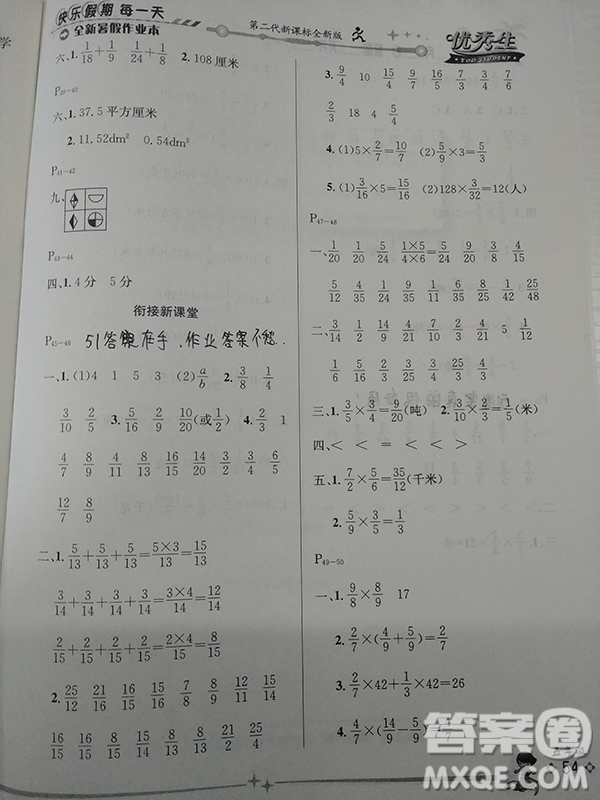 快乐假期 每一天
全新暑假作业本
第二代新课标全新版
优秀生
TOP STUDENT
学
六、1. 1/18+1/9 1/24+1/8 2. 108厘米
P39-40
六、1. 37.5平方厘米
2. 11.52dm² 0.54dm³
P41-42
九、
P43-44
四、1. 4分 5分
衔接新课堂
P45-46 51答案在手,作业答案不愁..
一、1. (1)4 1 5 3 (2)a/b 2. 3/8 1/4
3/10 2/5 3. 5/8 2/9 10/20(或1/2) 4. 2/3 1
4/7 8/9 4/8 8/11 8/13 16/15 14/20 4/2 3/3 6/4
12/7 8/9
二、1. 5/13+5/13+5/13=5×3/13=15/13
3/14+3/14+3/14+3/14=3×4/14=12/14
2/15+2/15+2/15+2/15=2×4/15=8/15
2. 25/12 21/16 16/15 15/16 7/8 5/8 24/25 16/15
16/15 8/15 5/8 25/24 21/16 7/8 25/12 15/16
3. 9/4 10 15/4 9/5 3/2 7/3 3/4 7/6
2/3 18 4 2/5
4. (1)5×2/7=10/7 (2)5/9×3=5/3
5. (1)3/16×5=15/16 (2)128×3/32=12(人)
P47-48
一、1/20 5/20 1×5/4×6 5/24 9/20 3/4 4/15
5/12 4/35 9/40 8/15 9/16 4/27 1/18 5/18
二、1/10 2/15 3/8 4/35 4/27 4/21 5 1/12
1/6 5/35 6/25 3/16 3/64 25/36 8/15 4/25
三、1. 3/5×3/4=9/20(吨) 2. 3/10×2/3=1/5(米)
四、< < = <
五、1. 7/2×5/6=35/12(千米)
2. 5/9×3/5=1/3
P49-50
一、1. 9/8×8/9 17
2. 2/7×(4/9+5/9)=2/7
3. 2/7×42+1/3×42=26
4. 4/7×(14/9-5/9)
答案卷
MXQE.COM
54